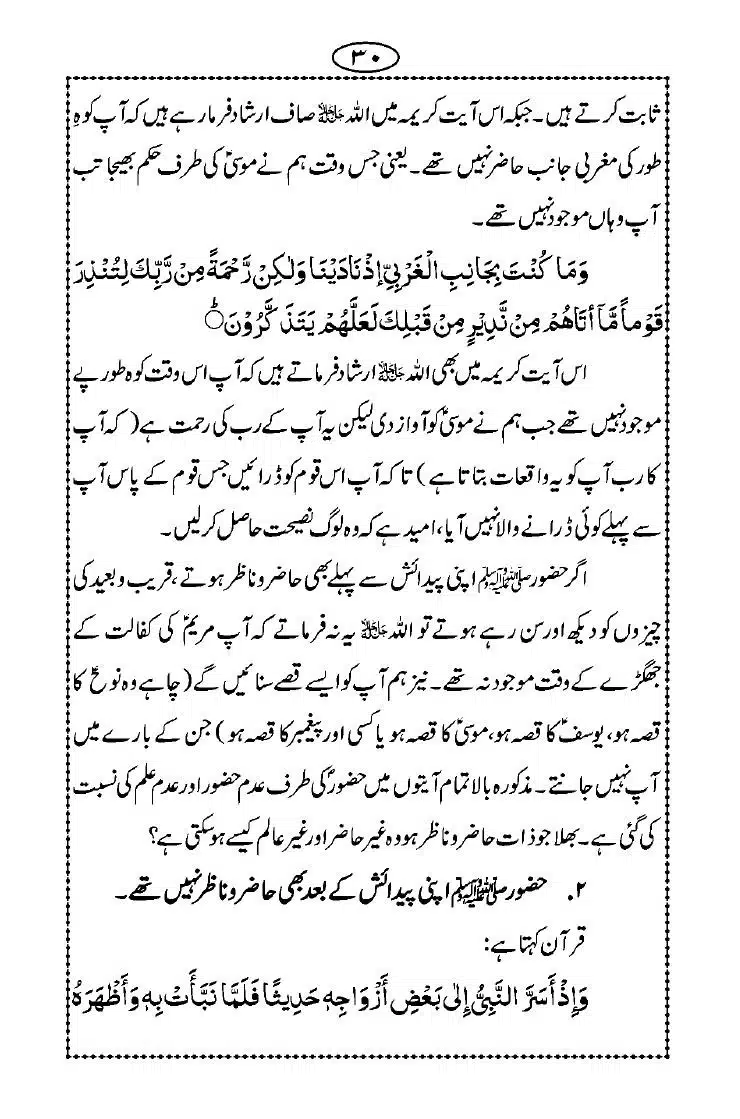 ۳۰
ثابت کرتے ہیں۔ جبکہ اس آیت کریمہ میں اللہ ﷻ صاف ارشاد فرما رہے ہیں کہ آپ کوہِ
طور کی مغربی جانب حاضر نہیں تھے۔ یعنی جس وقت ہم نے موسیٰؑ کی طرف حکم بھیجا تب
آپ وہاں موجود نہیں تھے۔
وَمَا كُنْتَ بِجَانِبِ الْغَرْبِيِّ إِذْ نَادَيْنَا وَلٰكِنْ رَّحْمَةً مِنْ رَّبِّكَ لِتُنْذِرَ
قَوْماً مَّا أَتَاهُمْ مِنْ نَّذِيْرٍ مِنْ قَبْلِكَ لَعَلَّهُمْ يَتَذَكَّرُوْنَ ۝ؕ
اس آیت کریمہ میں بھی اللہ ﷻ ارشاد فرماتے ہیں کہ آپ اس وقت کوہ طور پے
موجود نہیں تھے جب ہم نے موسیٰؑ کو آواز دی لیکن یہ آپ کے رب کی رحمت ہے ( کہ آپ
کا رب آپ کو یہ واقعات بتاتا ہے ) تا کہ آپ اس قوم کو ڈرائیں جس قوم کے پاس آپ
سے پہلے کوئی ڈرانے والا نہیں آیا، امید ہے کہ وہ لوگ نصیحت حاصل کرلیں۔
اگر حضور ﷺ اپنی پیدائش سے پہلے بھی حاضر و ناظر ہوتے، قریب و بعید کی
چیزوں کو دیکھ اور سن رہے ہوتے تو اللہ ﷻ یہ نہ فرماتے کہ آپ مریمؑ کی کفالت کے
جھگڑے کے وقت موجود نہ تھے۔ نیز ہم آپ کو ایسے قصے سنائیں گے (چاہے وہ نوحؑ کا
قصہ ہو، یوسفؑ کا قصہ ہو، موسیٰؑ کا قصہ ہو یا کسی اور پیغمبر کا قصہ ہو) جن کے بارے میں
آپ نہیں جانتے۔ مذکورہ بالا تمام آیتوں میں حضورؐ کی طرف عدم حضور اور عدم علم کی نسبت
کی گئی ہے۔ بھلا جو ذات حاضر و ناظر ہو وہ غیر حاضر اور غیر عالم کیسے ہو سکتی ہے؟
۲. حضور ﷺ اپنی پیدائش کے بعد بھی حاضر و ناظر نہیں تھے۔
قرآن کہتا ہے:
وَإِذْ أَسَرَّ النَّبِيُّ إِلٰى بَعْضِ أَزْوَاجِهٖ حَدِيثًا فَلَمَّا نَبَّأَتْ بِهٖ وَأَظْهَرَهُ